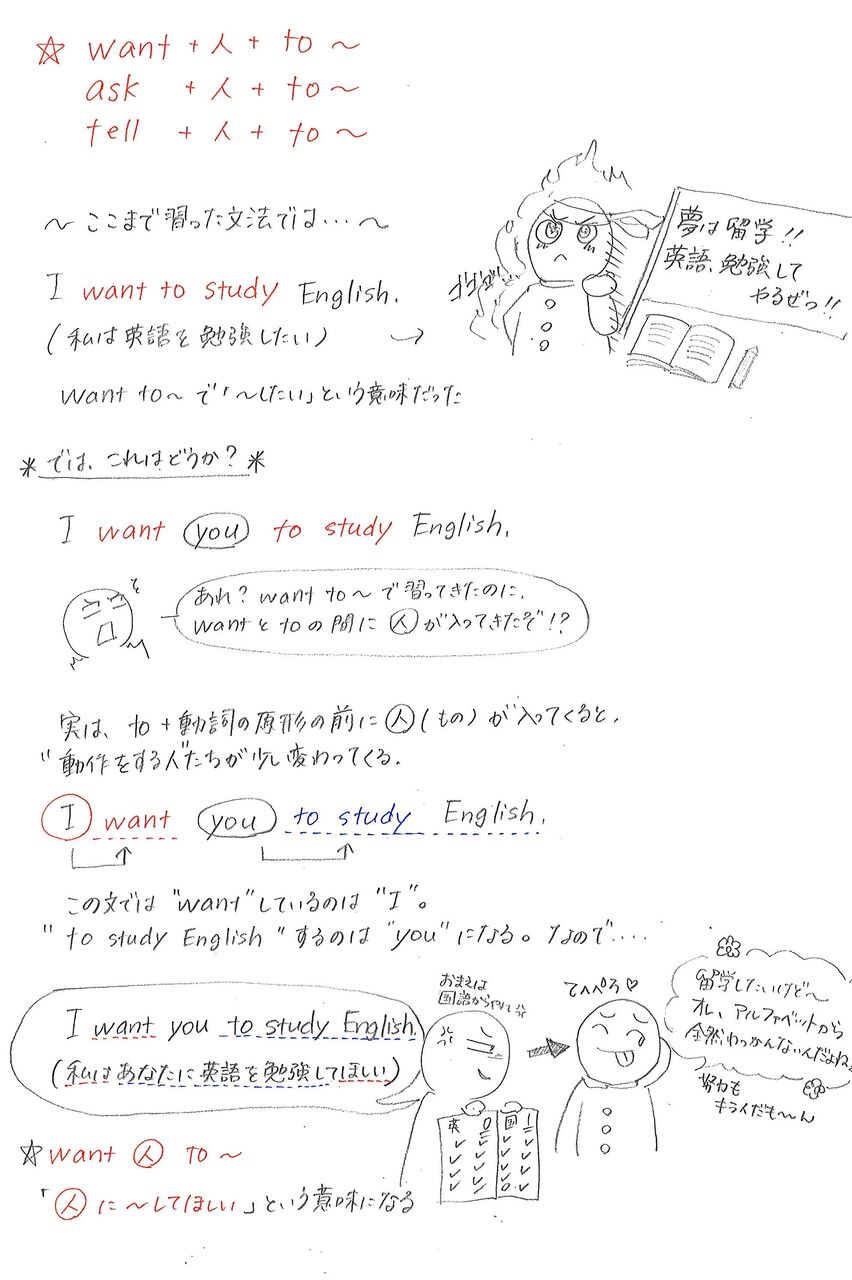 ☆ want + 人 + to ～
ask + 人 + to ～
tell + 人 + to ～
～ ここまで習った文法では… ～
I want to study English.
(私は英語を勉強したい) →
want to～で「～したい」という意味だった
夢は留学!!
英語、勉強して
やるぜっ!!
＊では、これはどうか?＊
I want you to study English.
あれ? want to～で習ってきたのに、
wantとtoの間に人が入ってきたぞ!?
実は、to+動詞の原形の前に人(もの)が入ってくると、
"動作をする人"たちが少し変わってくる。
I want you to study English.
この文では"want"しているのは"I"。
"to study English"するのは"you"になる。なので‥‥
I want you to study English.
(私はあなたに英語を勉強してほしい)
おまえは
国語からやれ
てへぺろ♡
留学したいけど～
オレ、アルファベットから
全然わっかんないんだよね。
努力も
キライだも～ん
英 0 国 1
☆want 人 to ～
「人に～してほしい」という意味になる